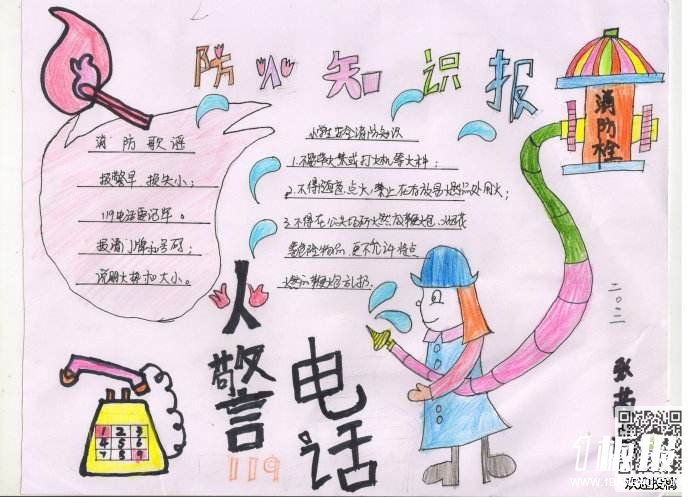 防火知识报
消防歌谣
报警早 损失小;
119电话要记牢。
报清门牌和号码;
说明火势和大小。
火警安全消防知识
1.不要带火柴或打火机等火种;
2.不得随意点火,禁止在有放易燃品处用火;
3.不得在公共场所燃放鞭炮、烟花
等危险物品,更不允许将点
燃的鞭炮乱扔。
消防栓
火警
119
电话
1 2 3
4 5 6
7 8 9
二〇一
张